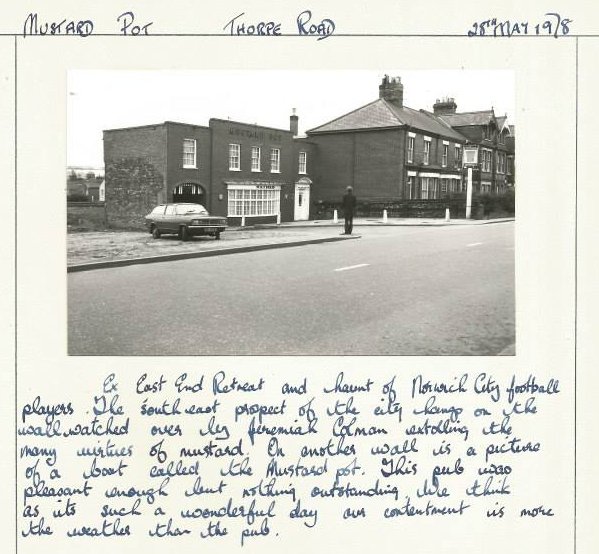 MUSTARD POT THORPE ROAD 28TH MAY 1978
MUSTARD POT
Ex East End Retreat and haunt of Norwich City football
players. The south east prospect of the city hangs on the
wall watched over by Jeremiah Colman extolling the
many virtues of mustard. On another wall is a picture
of a boat called the Mustard pot. This pub was
pleasant enough but nothing outstanding. We think
as its such a wonderful day our contentment is more
the weather than the pub.